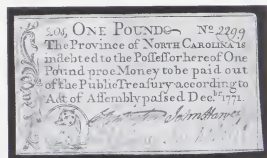 20s. ONE POUND No 2299
The Province of NORTH CAROLINA is
indebted to the Poſſeſſor hereof One
Pound proc. Money to be paid out
of the Public Treaſury according to
Act of Aſſembly paſsed Decbr. 1771.
John Harvey